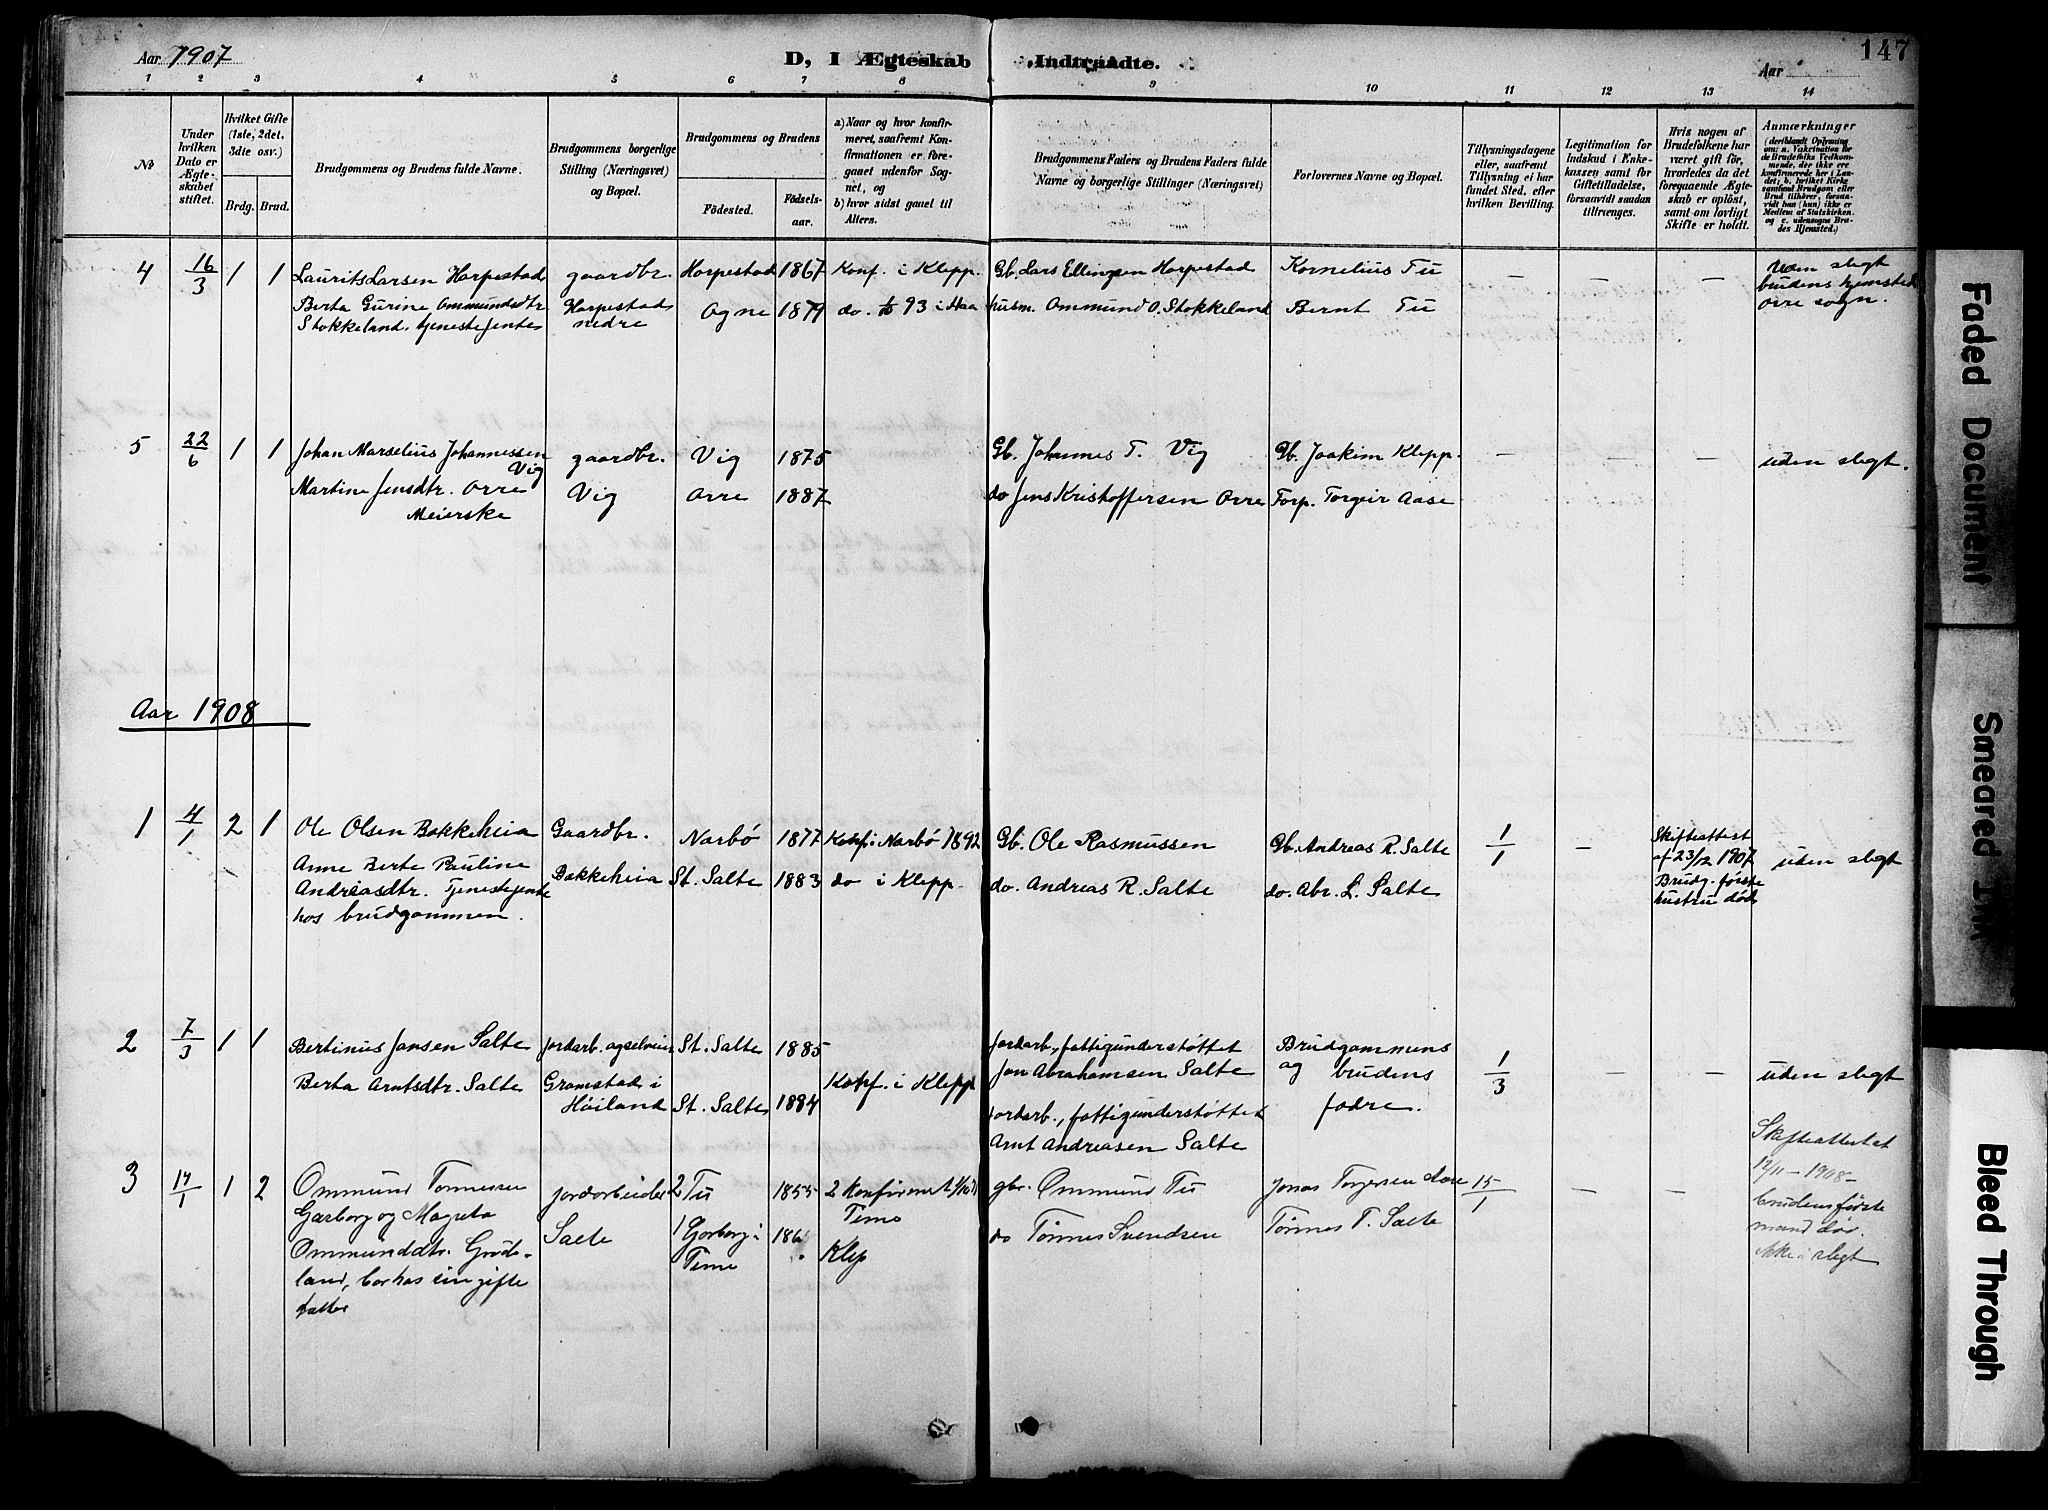 Aar 1907
D, I Ægteskab Indtraadte.
Aar
147
1 2 3 4 5 6 7 8 9 10 11 12 13 14
No
Under hvilken Dato er Ægteskabet stiftet.
Hvilket Gifte (1ste, 2det, 3die osv.)
Brdg. Brud.
Brudgommens og Brudens fulde Navne.
Brudgommens borgerlige Stilling (Næringsvei) og Bopæl.
Brudgommens og Brudens
Födested.
Födselsaar.
a) Naar og hvor konfirmeret, saafremt Konfirmationen er foregaaet udenfor Sognet, og
b) hvor sidst gaaet til Alters.
Brudgommens Faders og Brudens Faders fulde Navne og borgerlige Stillinger (Næringsvei)
Forlovernes Navne og Bopæl.
Tillysningsdagene eller, saafremt Tillysning ei har fundet Sted, efter hvilken Bevilling.
Legitimation for Indskud i Enkekassen samt for Giftetilladelse, forsaavidt saadan tiltrænges.
Hvis nogen af Brudefolkene har været gift för, hvorledes da det foregaaende Ægteskab er oplöst, samt om lovligt Skifte er holdt.
Anmærkninger (deriblandt Oplysning om: a. Vakcination for de Brudefolks Vedkommende, der ikke ere konfirmerede her i Landet; b. hvilket Kirkesamfund Brudgom eller Brud tilhörer, forsaavidt han (hun) ikke er Medlem af Statskirken, og c. udensogns Brudes Hjemsted.)
4 16/3 1 1 Laurits Larsen Harpestad gaardbr. Horpestad 1867 Konf. i Klepp. Gb. Lars Ellingsen Horpestad Kornelius Tu – – – Uden slegt
Berta Gurine Ommundsdtr Horpestad Ogne 1879 do. 93 i Haa husm. Ommund O. Stokkeland Bernt Tu brudens hjemsted
Stokkeland tjenestejente nedre Orre sogn.
5 22/6 1 1 Johan Marselius Johannessen Vig gaardbr. Vig 1875 Gb. Johannes T. Vig Gb. Joakim Klepp. – – – uden slegt.
Martine Jensdtr. Orre Vig Orre 1887 do Jens Kristoffersen Orre Forp. Torgeir Aase
Meierske
Aar 1908
1 4/1 2 1 Ole Olsen Bakkeheia Gaardbr. Narbø 1877 Konf. i Narbø 1892 Gb. Ole Rasmussen Gb. Andreas R. Salte 1/1 – Skifteattest
Anne Berte Pauline Bakkeheia St. Salte 1883 do i Klepp. do. Andreas R. Salte do. Abr. L. Salte af 23/12 1907. uden slegt
Andreasdtr. Tjenestejente Brudg. første
hos brudgommen. hustru død
2 7/3 1 1 Bertinus Jansen Salte jordarb. St. Salte 1885 Jordarb., fattigunderstøttet Brudgommens 1/3 – – uden slegt
Berta Arntsdtr. Salte Gramstad i Konf. i Klepp Jon Abrahamsen Salte og brudens
Høiland St. Salte 1884 Jordarb., fattigunderstøttet fadre.
Arnt Andreasen Salte
3 14/1 1 2 Ommund Tønnessen jordarbeider 2 Tu 1855 2 Konfirmert gbr. Ommund Tu Jonas Torgersen 15/1 – – Skifteattestet
Garborg og Salte 1 Garborg i Time do Tønnes Svendsen Tønnes T. Salte 12/11 – 1908 –
Ommundsdtr. Time Klep brudens første
land, bor hos sin gifte mand død.
datter Ikke i slegt
Faded Document
Smeared Ink
Bleed Through